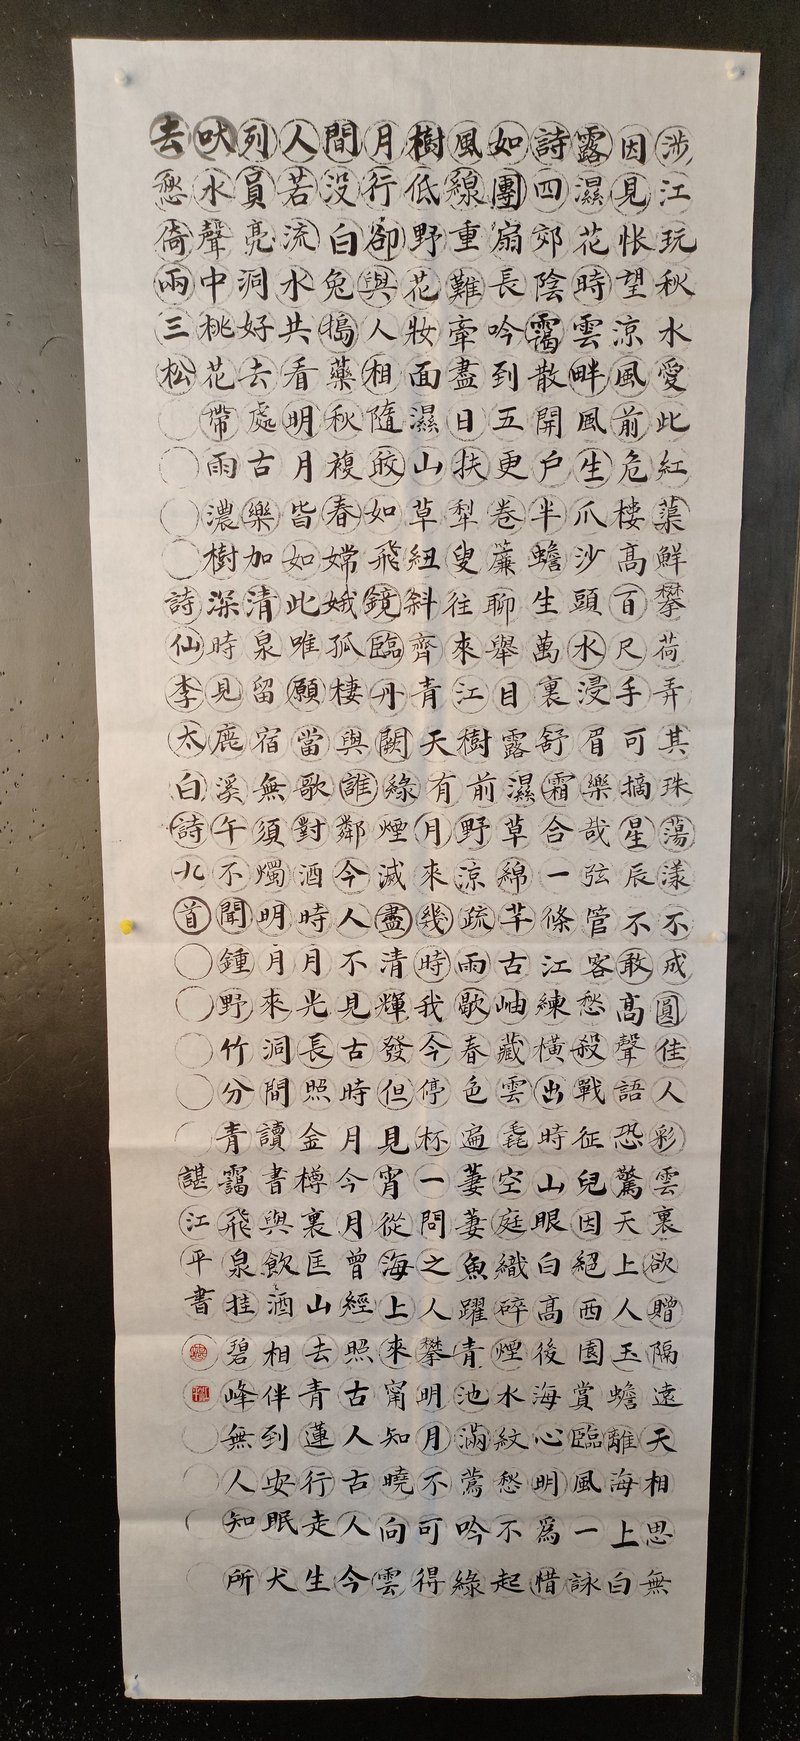 涉江玩秋水愛此紅蕖鮮攀荷弄其珠蕩漾不成圓佳人彩雲裏欲贈隔遠天相思無
因見悵望涼風前危樓高百尺手可摘星辰不敢高聲語恐驚天上人玉蟾離海上白
露濕花時雲畔風生爪沙頭水浸眉樂哉弦管客愁殺戰征兒因絕西園賞臨風一詠
詩四郊陰靄散開戶半蟾生萬裏舒霜合一條江練橫出時山眼白高後海心明爲惜
如團扇長吟到五更卷簾聊舉目露濕草綿芊古岫藏雲毳空庭織碎煙水紋愁不起
風線重難牽盡日扶犁叟往來江樹前野涼疏雨歇春色遍萋萋魚躍青池滿鶯吟綠
樹低野花妝面濕山草紐斜齊青天有月來幾時我今停杯一問之人攀明月不可得
月行卻與人相隨皎如飛鏡臨丹闕綠煙滅盡清輝發但見宵從海上來甯知曉向雲
間沒白兔搗藥秋複春嫦娥孤棲與誰鄰今人不見古時月今月曾經照古人古人今
人若流水共看明月皆如此唯願當歌對酒時月光長照金樽裏匡山去青蓮行走生
列員亮洞好去處古樂加清泉留宿無須燭明月來洞間讀書與飲酒相伴到安眠犬
吠水聲中桃花帶雨濃樹深時見鹿溪午不聞鍾野竹分青靄飛泉挂碧峰無人知所
去愁倚兩三松 詩仙李太白詩九首 諶江平書